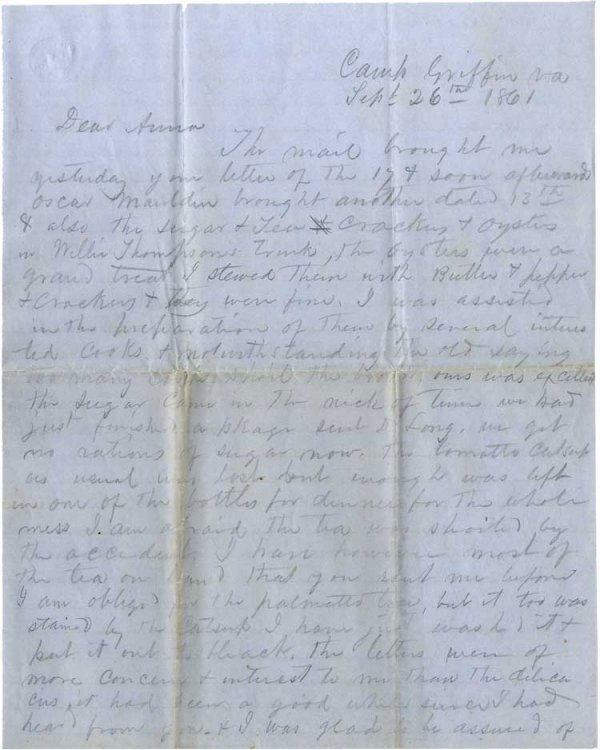 Camp Griffin va
Sept 26th 1861
Dear Anna
The mail brought me
yesterday your letter of the 17 & soon afterward
Oscar Mauldin brought another dated 13th
& also the sugar & Tea & Crackers & oysters
in Willie Thompsons Trunk, the oysters were a
grand treat I stewed them with Butter & pepper
& Crackers & they were fine. I was assisted
in the preparation of them by several interes
ted Cooks & notwithstanding the old saying
too many Cooks spoil the broth, ours was excellent
the sugar Came in the nick of time we had
just finished a package sent Dr Long. we get
no rations of sugar now. The tomatto Catsup
as usual was lost but enough was left
in one of the bottles for dinner for the whole
mess I am afraid the tea was spoiled by
the accident I have however most of
the tea on hand that you sent me before
I am obliged for the palmetto tree, but it too was
stained by the Catsup I have just washed it &
put it out to bleach. The letters were of
more Concern & interest to me than the delica
cies, it had been a good while since I had
heard from you & I was glad to be assured of